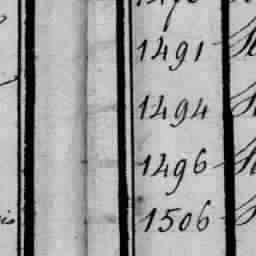 1491
1494
1496
1506